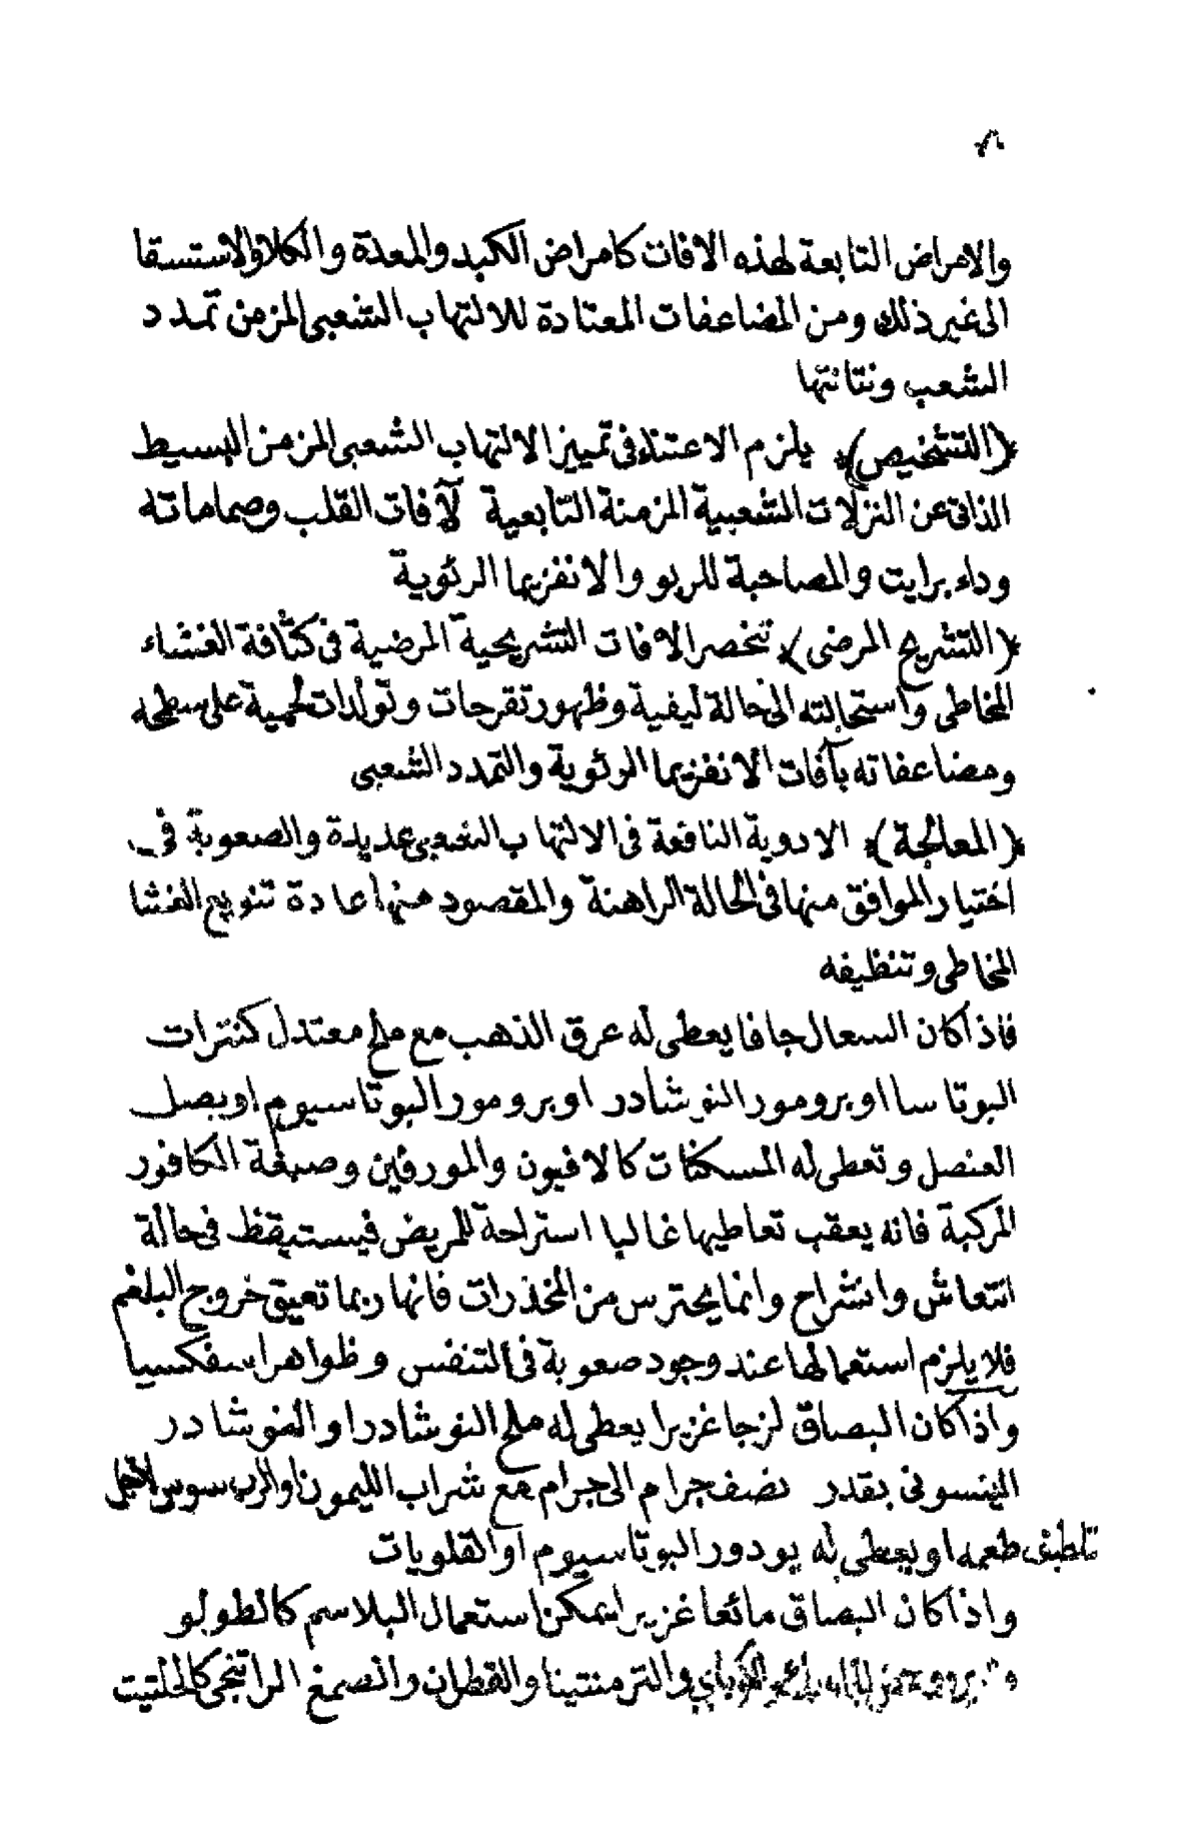 والامراض التابعة لهذه الافات كامراض الكبد والمعدة والكلاوالاستسقا
الى غير ذلك ومن المضاعفات المعتادة للالتهاب الشعبى المزمن تمدد
الشعب ونتانتها
﴿التشخيص﴾ يلزم الاعتناء فى تمييز الالتهاب الشعبى المزمن البسيط
الذاتى عن النزلات الشعبية المزمنة التابعية لآفات القلب وصماماته
وداء برايت والمصاحبة للربو والانفزيما الرئوية
﴿التشريح المرضى﴾ تنحصر الافات التشريحية المرضية فى كثافة الغشاء
المخاطى واستحالته الى حالة ليفية وظهور تقرحات وتولدات لحمية على سطحه
ومضاعفاته بآفات الانفزيما الرئوية والتمدد الشعبى
﴿المعالجة﴾ الادوية النافعة فى الالتهاب الشعبى عديدة والصعوبة فى
اختيار الموافق منها فى الحالة الراهنة والمقصود منها عادة تنويع الغشا
المخاطى وتنظيفه
فاذا كان السعال جافا يعطى له عرق الذهب مع ملح معتدل كنترات
البوتاسا او برومور النوشادر او برومور البوتاسيوم او بصل
العنصل وتعطى له المسكنات كالافيون والمورفين وصبغة الكافور
المركبة فانه يعقب تعاطيها غالبا استراحة للمريض فيستيقظ فى حالة
انتعاش وانشراح وانما يحترس من المخذرات فانها ربما تعيق خروج البلغم
فلا يلزم استعمالها عند وجود صعوبة فى التنفس وظواهر اسفكسيا
واذا كان البصاق لزجا غزيرا يعطى له ملح النوشادر او النوشادر
الينسونى بقدر نصف جرام الى جرام مع شراب الليمون او الرب سوس لاجل
تلطيف طعمه او يعطى له يودور البوتاسيوم او القلويات
واذا كان البصاق مائعا غزيرا يمكن استعمال البلاسم كالطولو
والترمنتينا والقطران والصمغ الراتنجى كالحلتيت